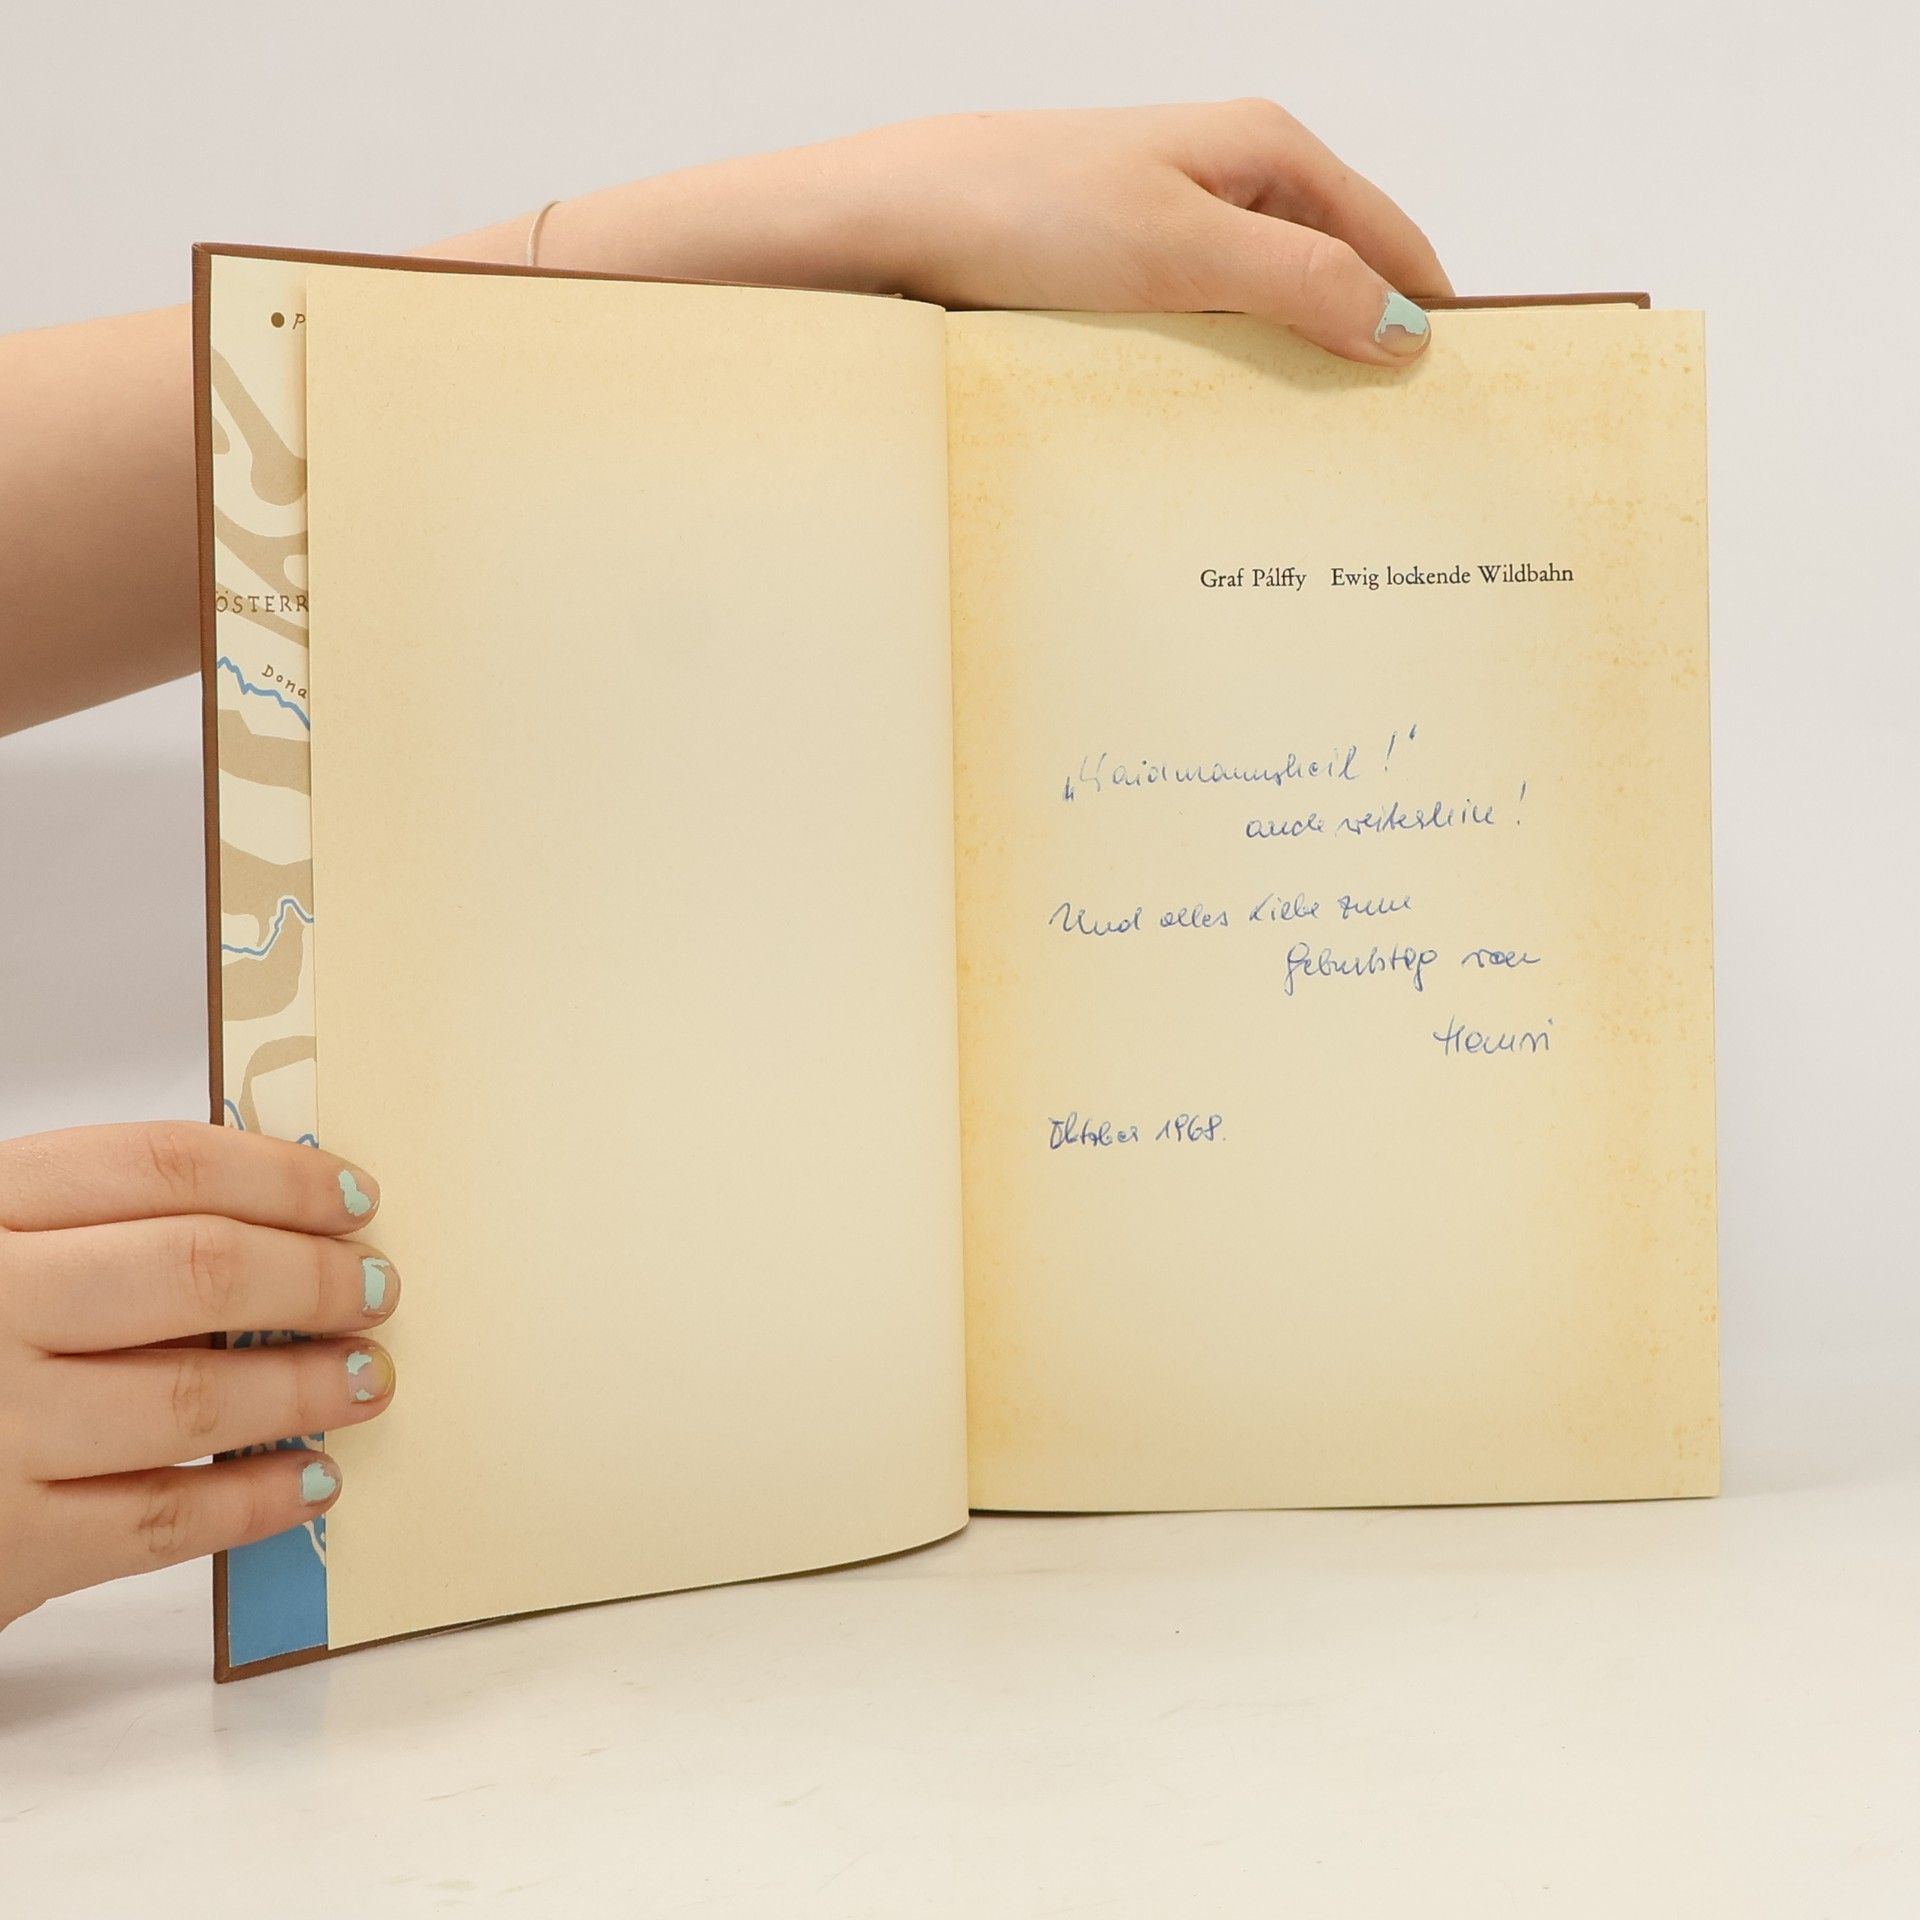 P
ÖSTERR
Dona
Graf Pálffy Ewig lockende Wildbahn
„Waidmannsheil!“
auch weiterhin!
Und alles Liebe zum
Geburtstag von
Oktober 1968.